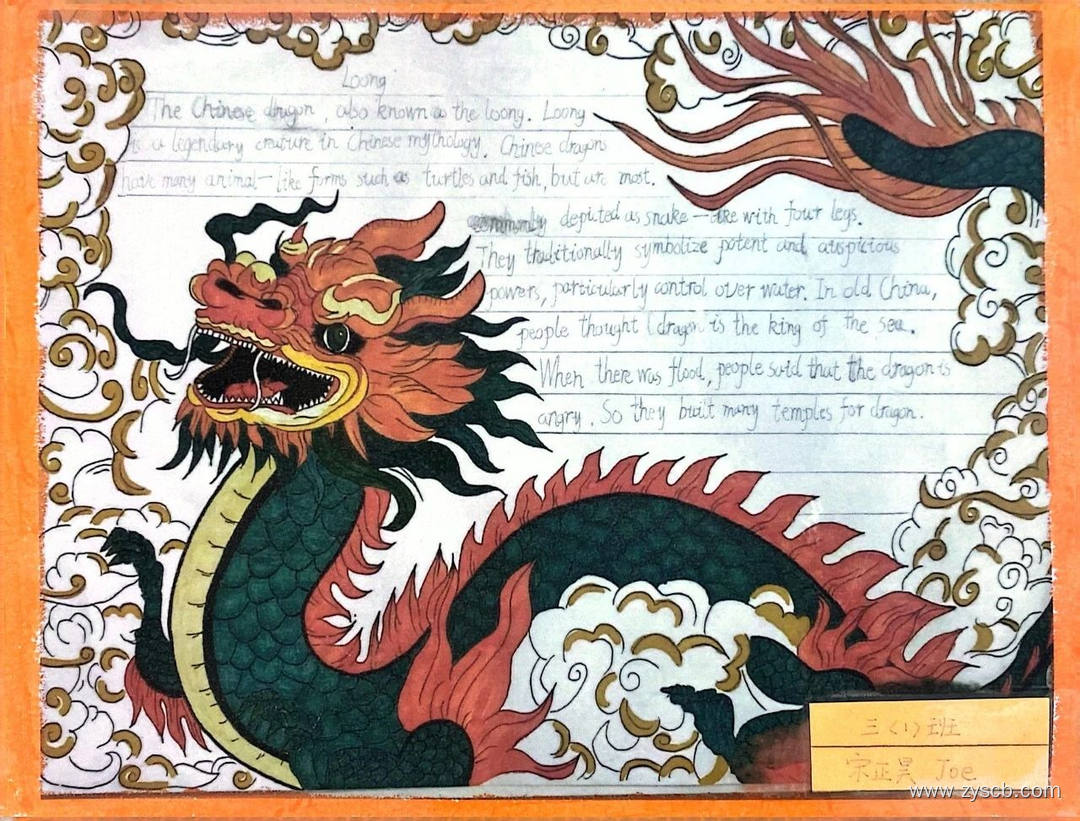 Loong
The Chinese dragon, also known as the loong. Loong
is a legendary creature in Chinese mythology. Chinese dragons
have many animal-like forms such as turtles and fish, but are most.
commonly depited as snake-like with four legs.
They traditionally symbolize potent and auspicious
powers, particularly control over water. In old China,
people thought dragon is the king of the sea.
When there was flood, people said that the dragon is
angry. So they built many temples for dragon.
三〈1〉班
宋正昊 Joe
www.zyscb.com